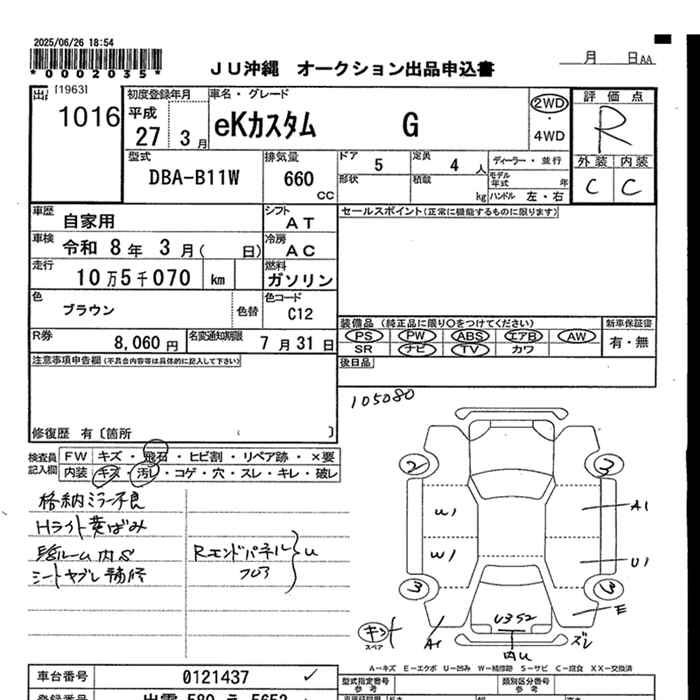 2025/06/26 18:54
*0002035*
JU沖縄 オークション出品申込書
月 日AA
[1963]
1016
初度登録年月
平成
27 3月
車名・グレード
eKカスタム G
2WD
・
4WD
評価点
R
型式
DBA-B11W
排気量
660
CC
ドア 5
定員 4 人
ディーラー・並行
形状
積載 kg
モデル年式 年
ハンドル 左・右
外装 内装
C C
車歴 自家用
シフト AT
セールスポイント(正常に機能するものに限ります)
車検 令和 8年 3月( 日)
冷房 AC
走行 10万5千070 km
燃料 ガソリン
色 ブラウン
色替
色コード C12
R券 8,060円
名変通知期限 7月31日
装備品(純正品に限り○をつけてください)
新車保証書
PS PW ABS エアB AW
有・無
SR ナビ TV カワ
後日品
注意事項申告欄(不具合内容等は具体的に記入して下さい)
修復歴 有〔箇所 〕
105080
検査員
記入欄
FW キズ・飛石・ヒビ割・リペア跡・×要
内装 キズ・汚レ・コゲ・穴・スレ・キレ・破レ
格納ミラー不良
Hライト黄ばみ
シートヤブレ補修
Rエンドパネル
U
2
3
U1
A1
W1
U1
3
3
E
U3S2
キズ
スペア
A1
内U
ズレ
A-キズ E-エクボ U-凹み W-補修跡 S-サビ C-腐食 XX-交換済
車台番号 0121437
型式指定番号
参考
類別区分番号
参考